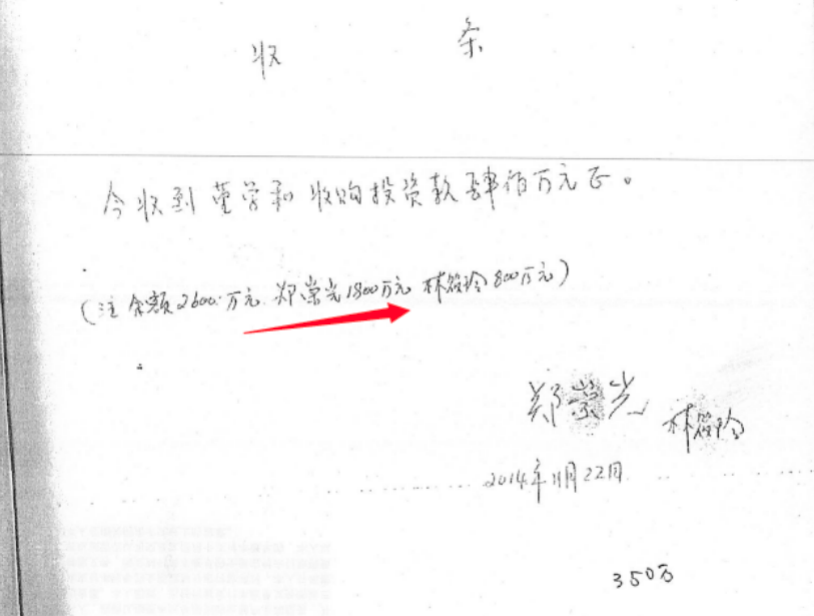 收 条
今收到董学和收购投资款肆佰万元正。
(注 余额2600万元.郑崇光1800万元 林筱玲800万元)
郑崇光 林筱玲
2014年11月22日
350万